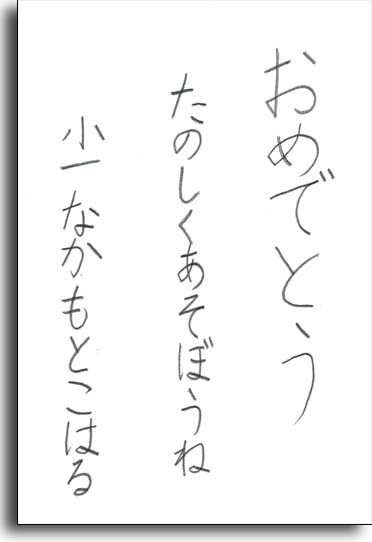 おめでとう
たのしくあそぼうね
小一なかもとこはる